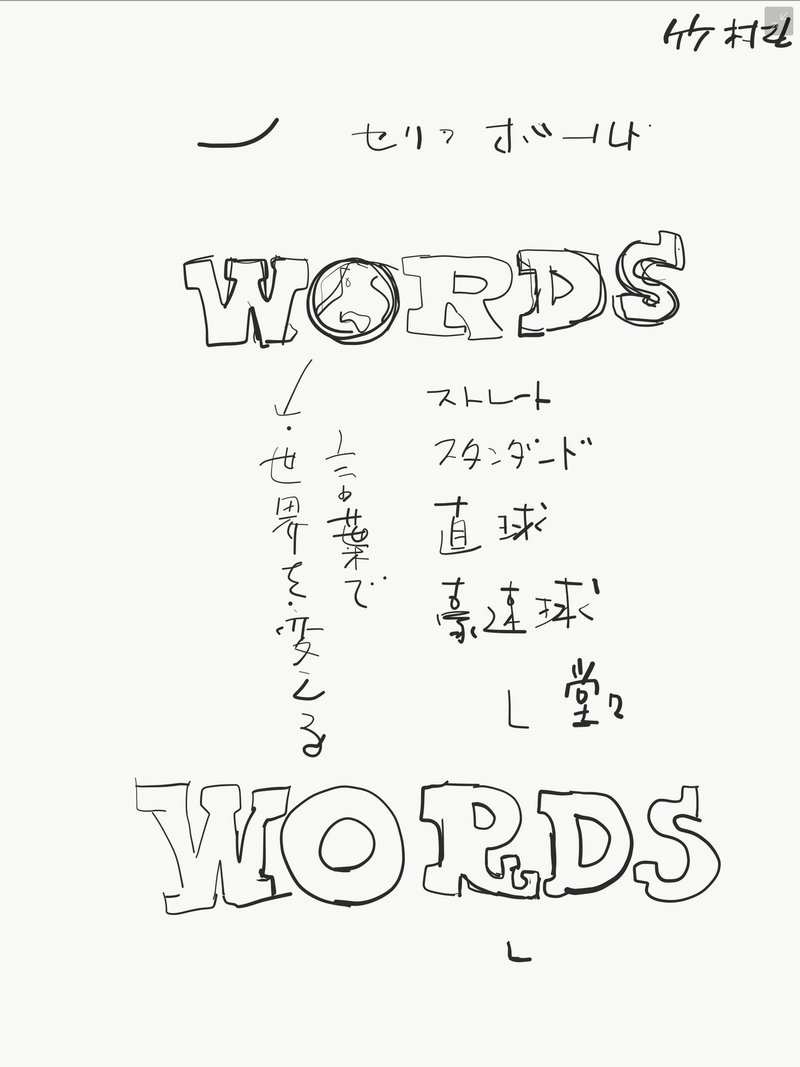 竹村
セリフ ボールド
WORDS
言葉で
世界を変える
ストレート
スタンダード
直球
豪速球
堂々
WORDS